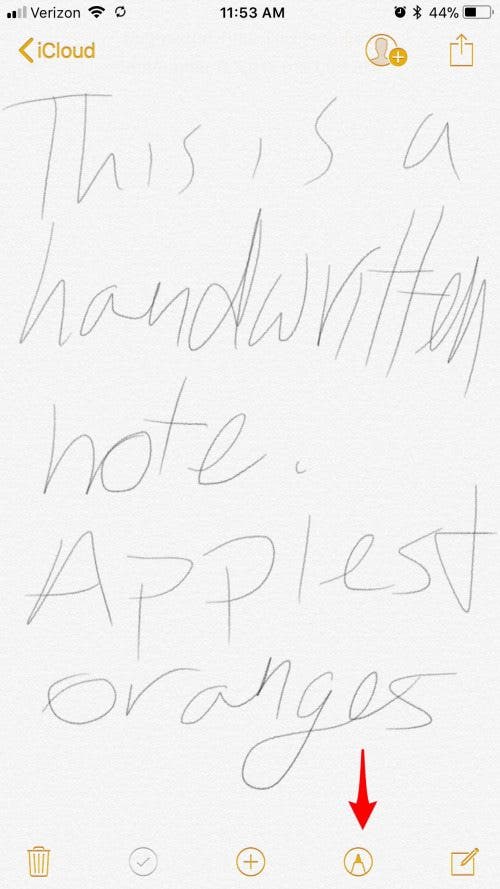 Verizon 11:53 AM 44%
iCloud
This is a
handwritten
note.
Apples+
oranges